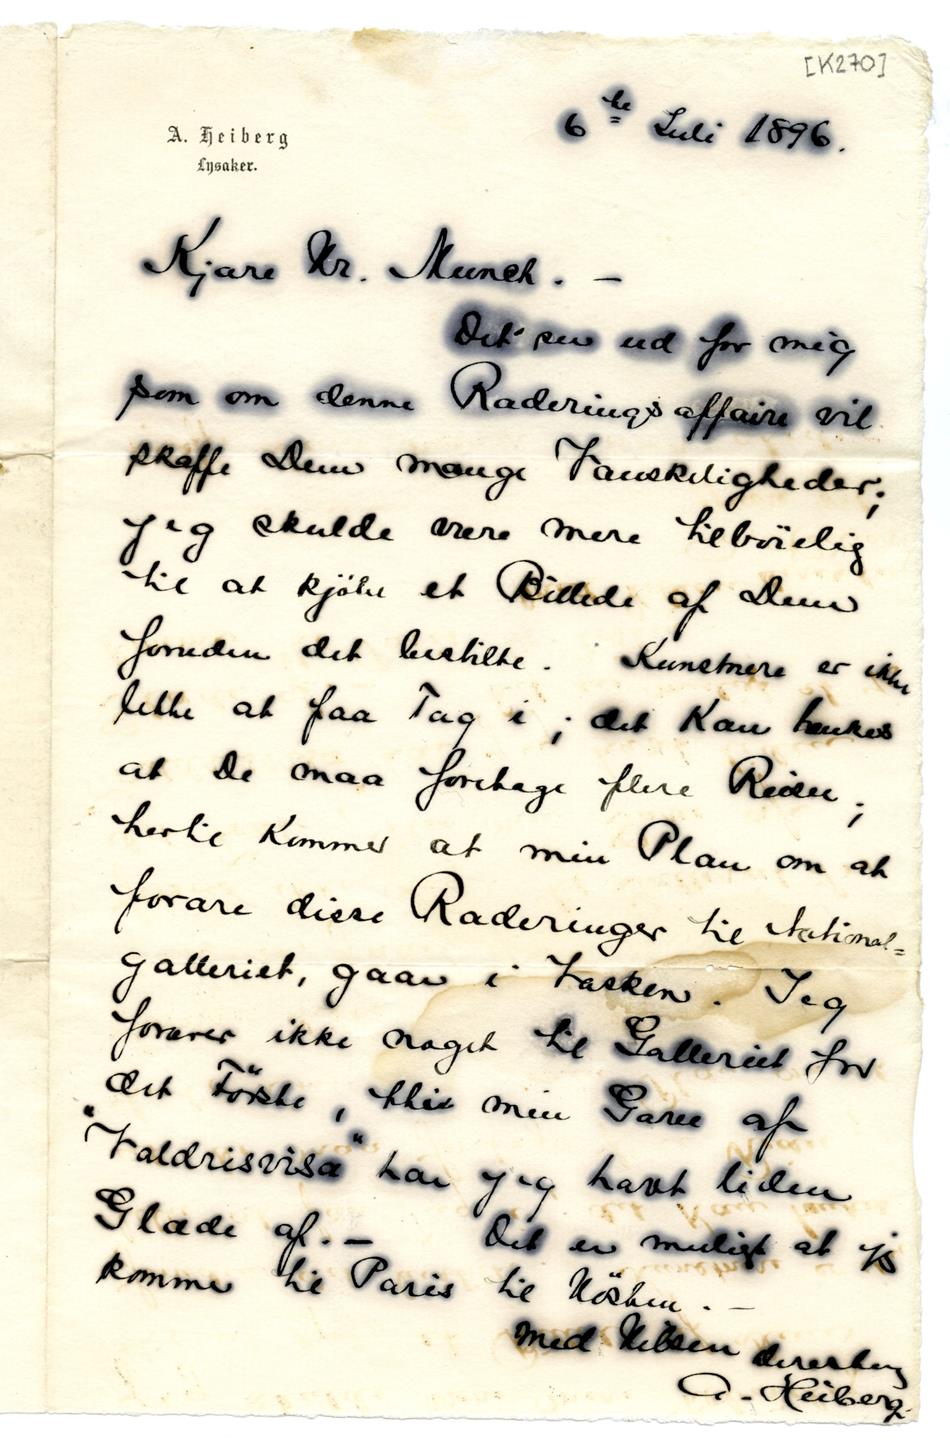 [K270]
A. Heiberg
Lysaker.
6te Juli 1896.
Kjære Hr. Munch. —
Det ser ud for mig
som om denne Raderingsaffaire vil
skaffe Dem mange Vanskeligheder;
jeg skulde være mere tilböielig
til at kjöbe et Billede af Dem
foruden det bestilte. Kunstnere er ikke
lette at faa Tag i; det kan hænkes
at De maa foretage flere Reiser;
hertil kommer at min Plan om at
forære disse Raderinger til National=
galleriet, gaar i Vasken. Jeg
forærer ikke noget til Galleriet for
det Förste, thi min Gave af
"Valdrisvisa" har jeg havt liden
Glæde af. — Det er muligt at jeg
kommer til Paris til Hösten. —
Med Hilsen Deres
A. Heiberg.